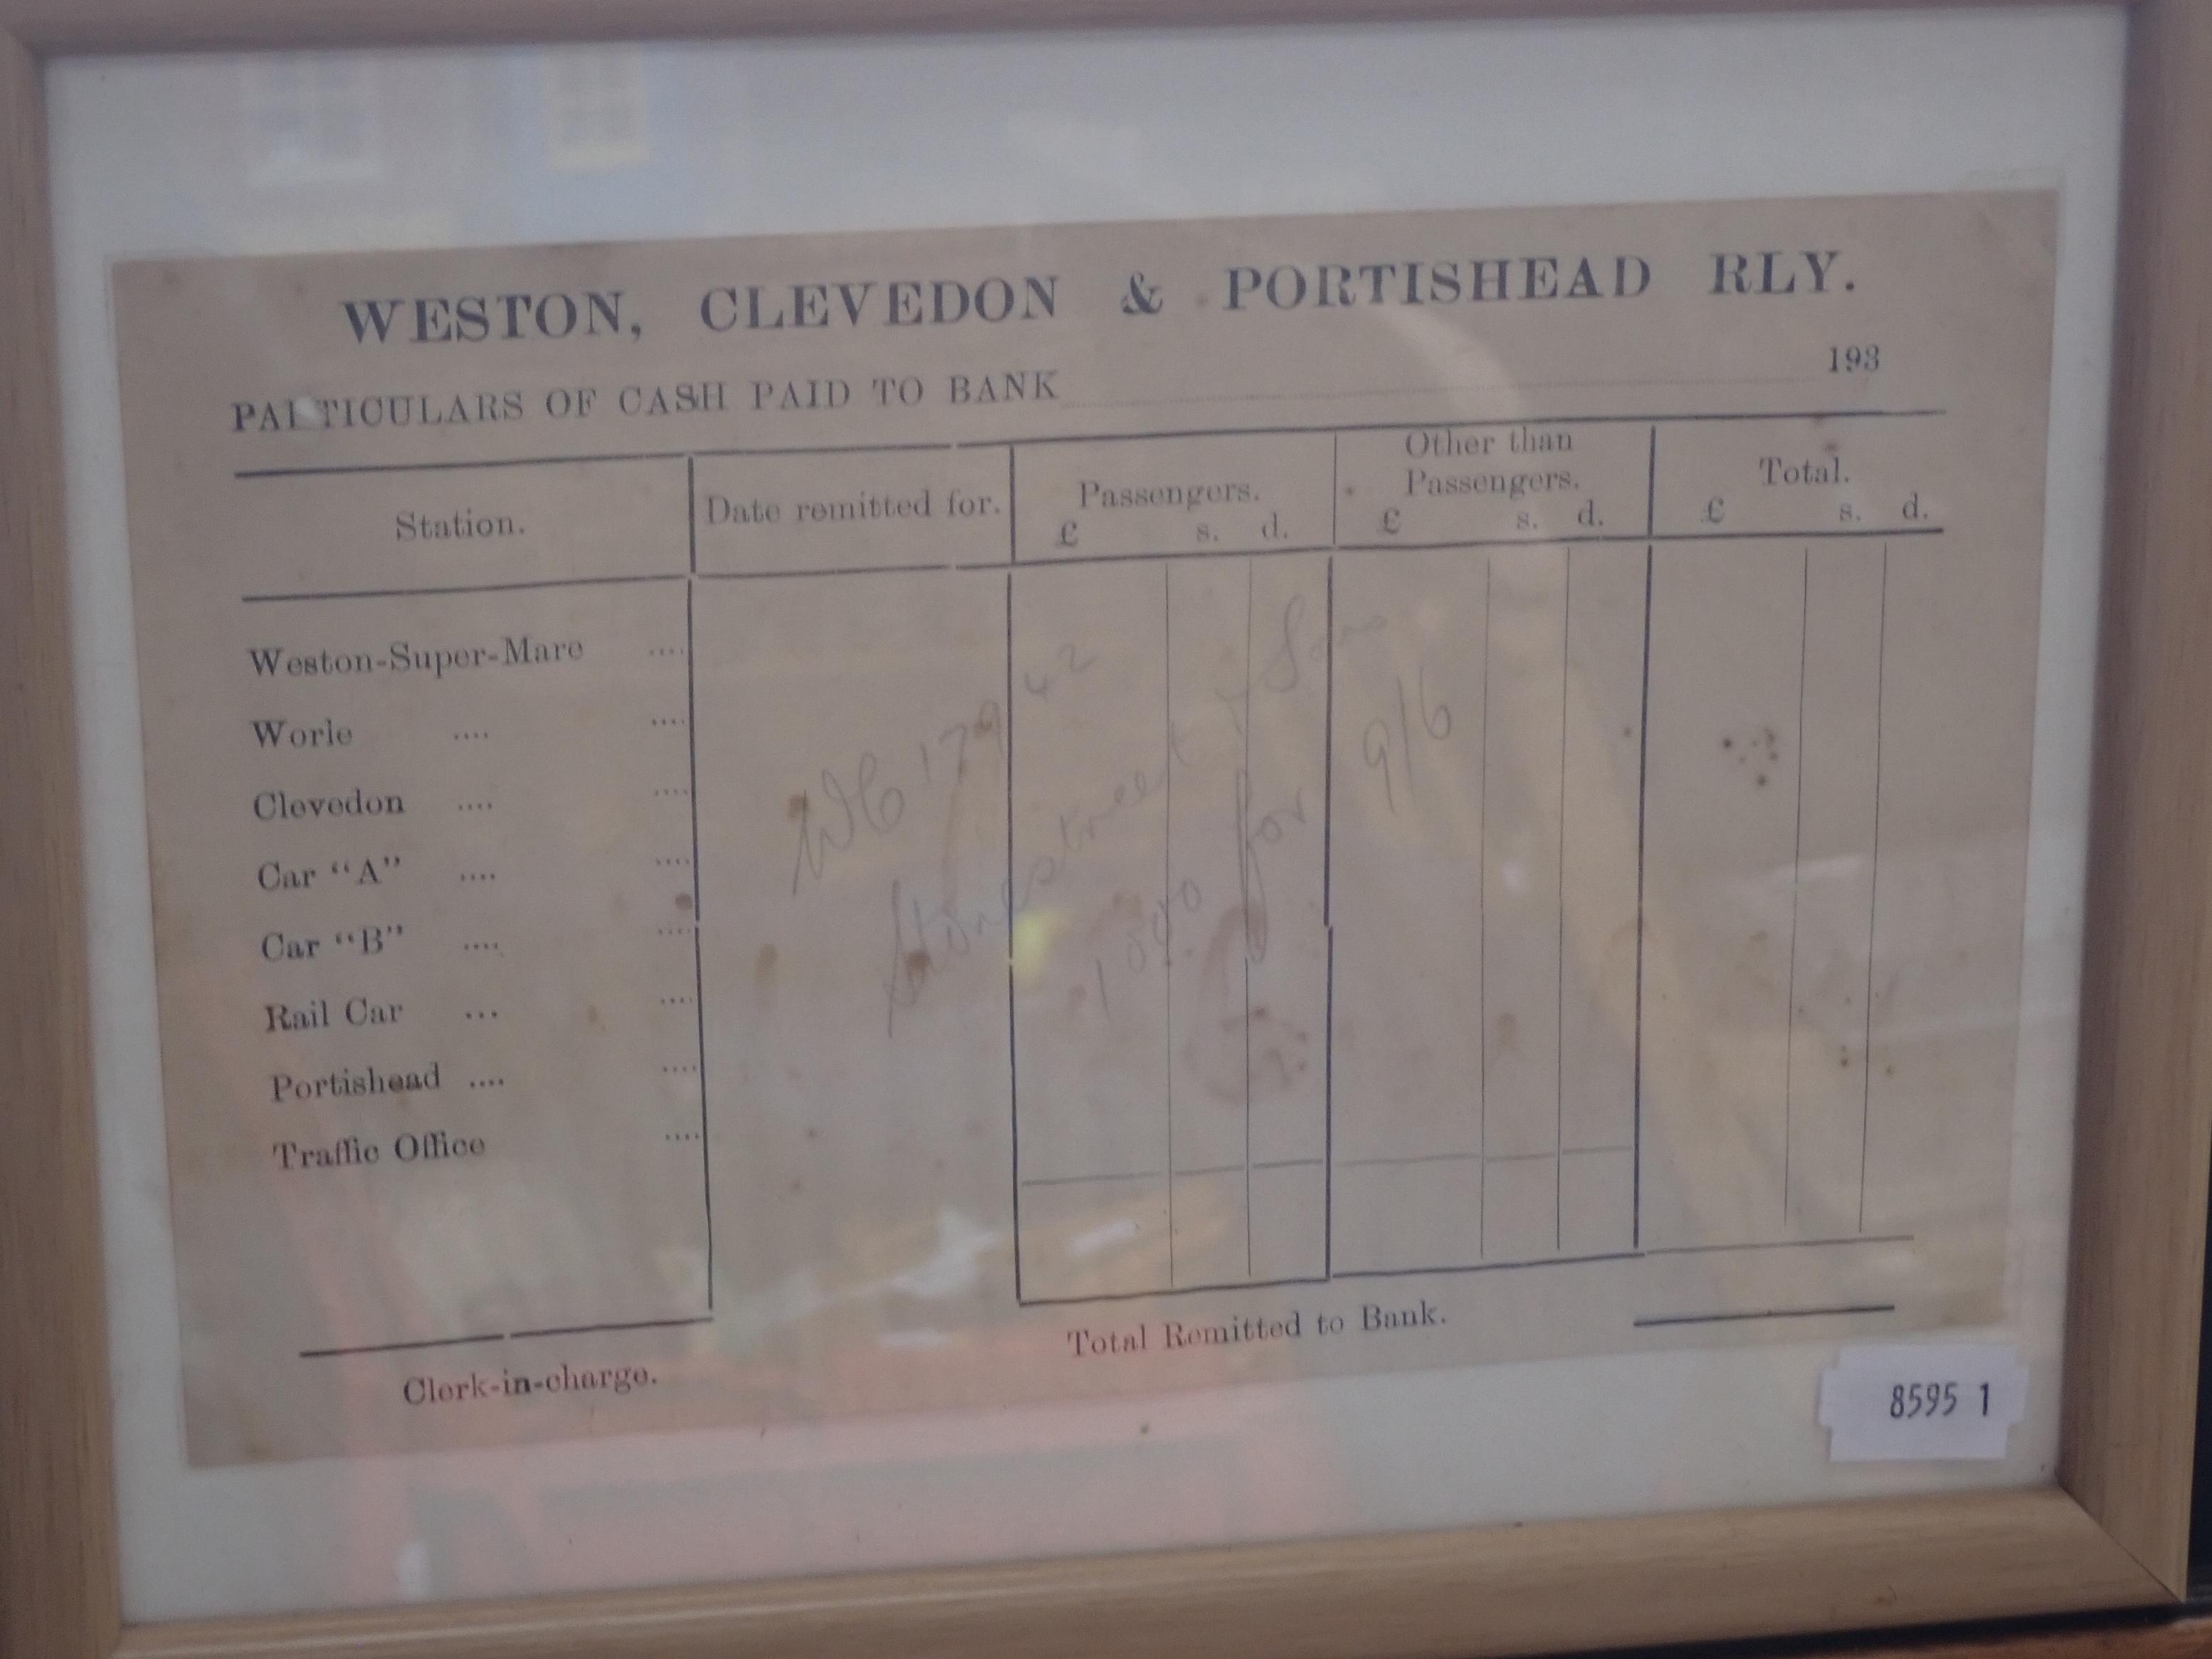 WESTON, CLEVEDON & PORTISHEAD RLY.
PARTICULARS OF CASH PAID TO BANK 193
Station. Date remitted for. Passengers. £ s. d. Other than Passengers. £ s. d. Total. £ s. d.
Weston-Super-Mare ....
Worle .... ....
Clevedon .... ....
Car "A" .... ....
Car "B" .... ....
Rail Car ... ....
Portishead .... ....
Traffic Office ....
Stonestreet & Sons
for 9/6
Total Remitted to Bank.
Clerk-in-charge.
8595 1